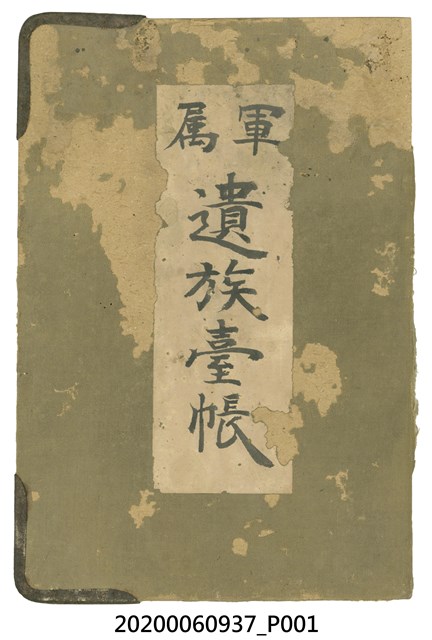 軍属
遺族臺帳
20200060937_P001